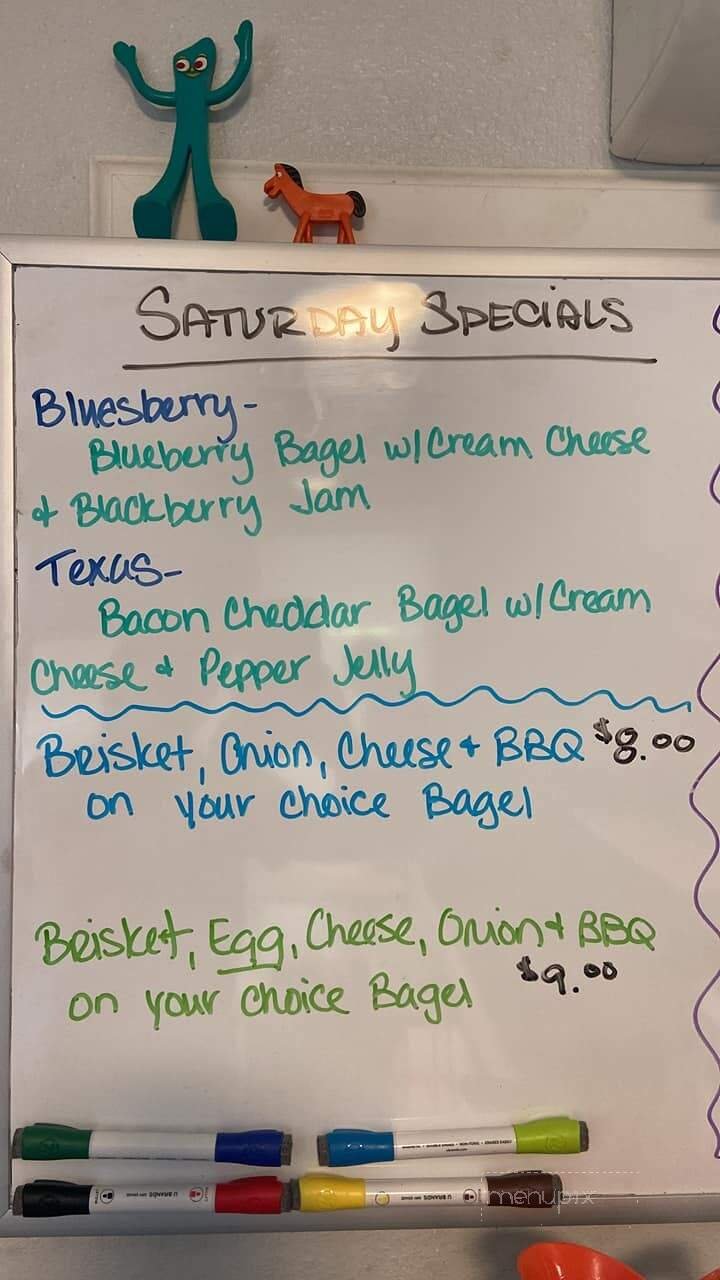 SATURDAY SPECIALS
Bluesberry-
Blueberry Bagel w/Cream Cheese
& Blackberry Jam
Texas-
Bacon Cheddar Bagel w/Cream
Cheese & Pepper Jelly
Brisket, Onion, Cheese & BBQ $8.00
on your choice Bagel
Brisket, Egg, Cheese, Onion & BBQ
on your choice Bagel $9.00
U BRANDS
U BRANDS
menupix